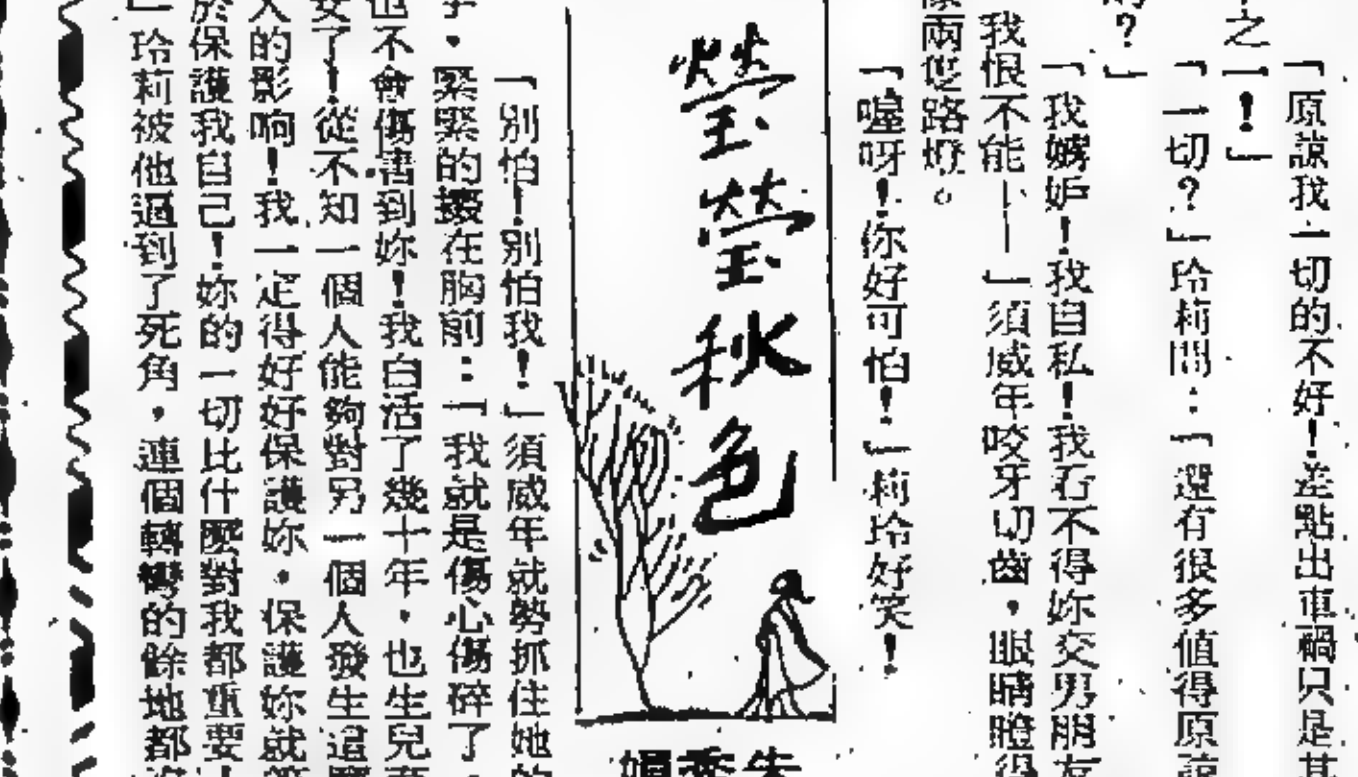 「原諒我一切的不好！差點出車禍只是其
中之一！」
「一切？」玲莉問：「還有很多值得原諒
的？」
「我嫉妒！我自私！我看不得妳交男朋友
我恨不能——」須威年咬牙切齒，眼睛瞪得
像兩隻路燈。
「喔呀！你好可怕！」莉玲好笑！
瑩瑩秋色
朱秀娟
「別怕！別怕我！」須威年就勢抓住她的
手，緊緊的握在胸前：「我就是傷心傷碎了，
也不會傷害到妳！我白活了幾十年，也生兒育
女了！從不知一個人能夠對另一個人發生這麼
大的影响！我一定得好好保護妳，保護妳就等
於保護我自己！妳的一切比什麼對我都重要！
」玲莉被他逼到了死角，連個轉彎的餘地都